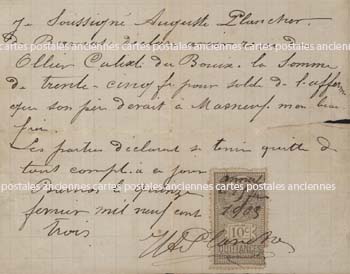 Je Soussigné Auguste Plancher.
De
Ollier Calixte du Bouix. la Somme
de trente-cinq fr pour solde de l'afferme
que son père devait à Masneuf. mon beau
frère.
Les parties déclarent se tenir quitte de
tout compte à ce jour
le quinze
fevrier mil neuf cent
trois
1903
10c
QUITTANCES
A Plancher
cartes postales anciennes cartes postales anciennes cartes postales anciennes
cartes postales anciennes cartes postales anciennes cartes postales anciennes